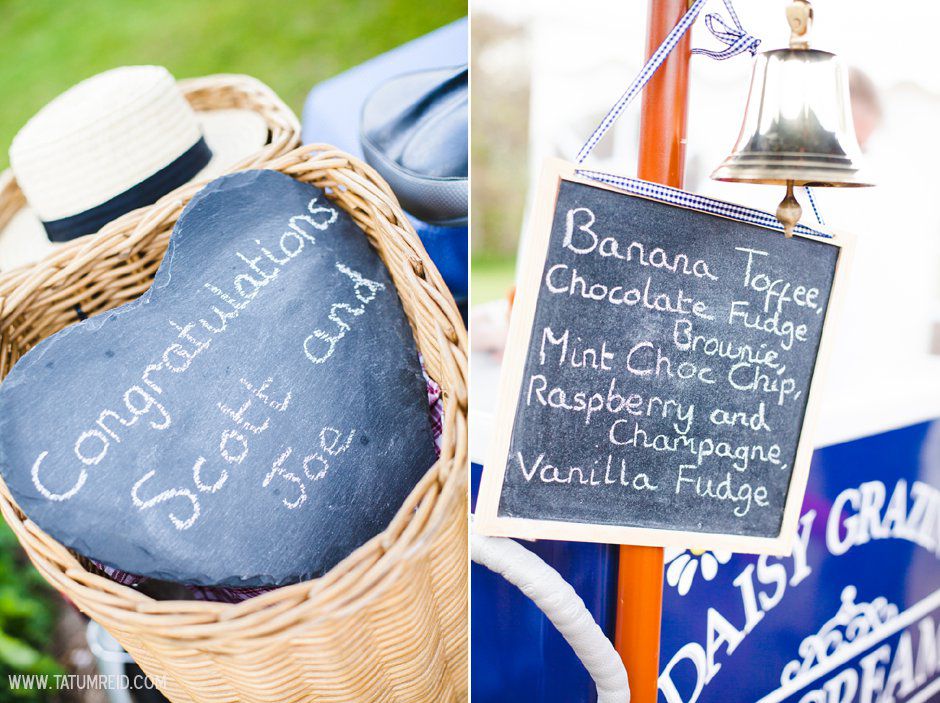 Congratulations
Scott and
Joe
WWW.TATUMREID.COM
Banana Toffee,
Chocolate Fudge
Brownie,
Mint Choc Chip,
Raspberry and
Champagne,
Vanilla Fudge
DAISY GRAZIN